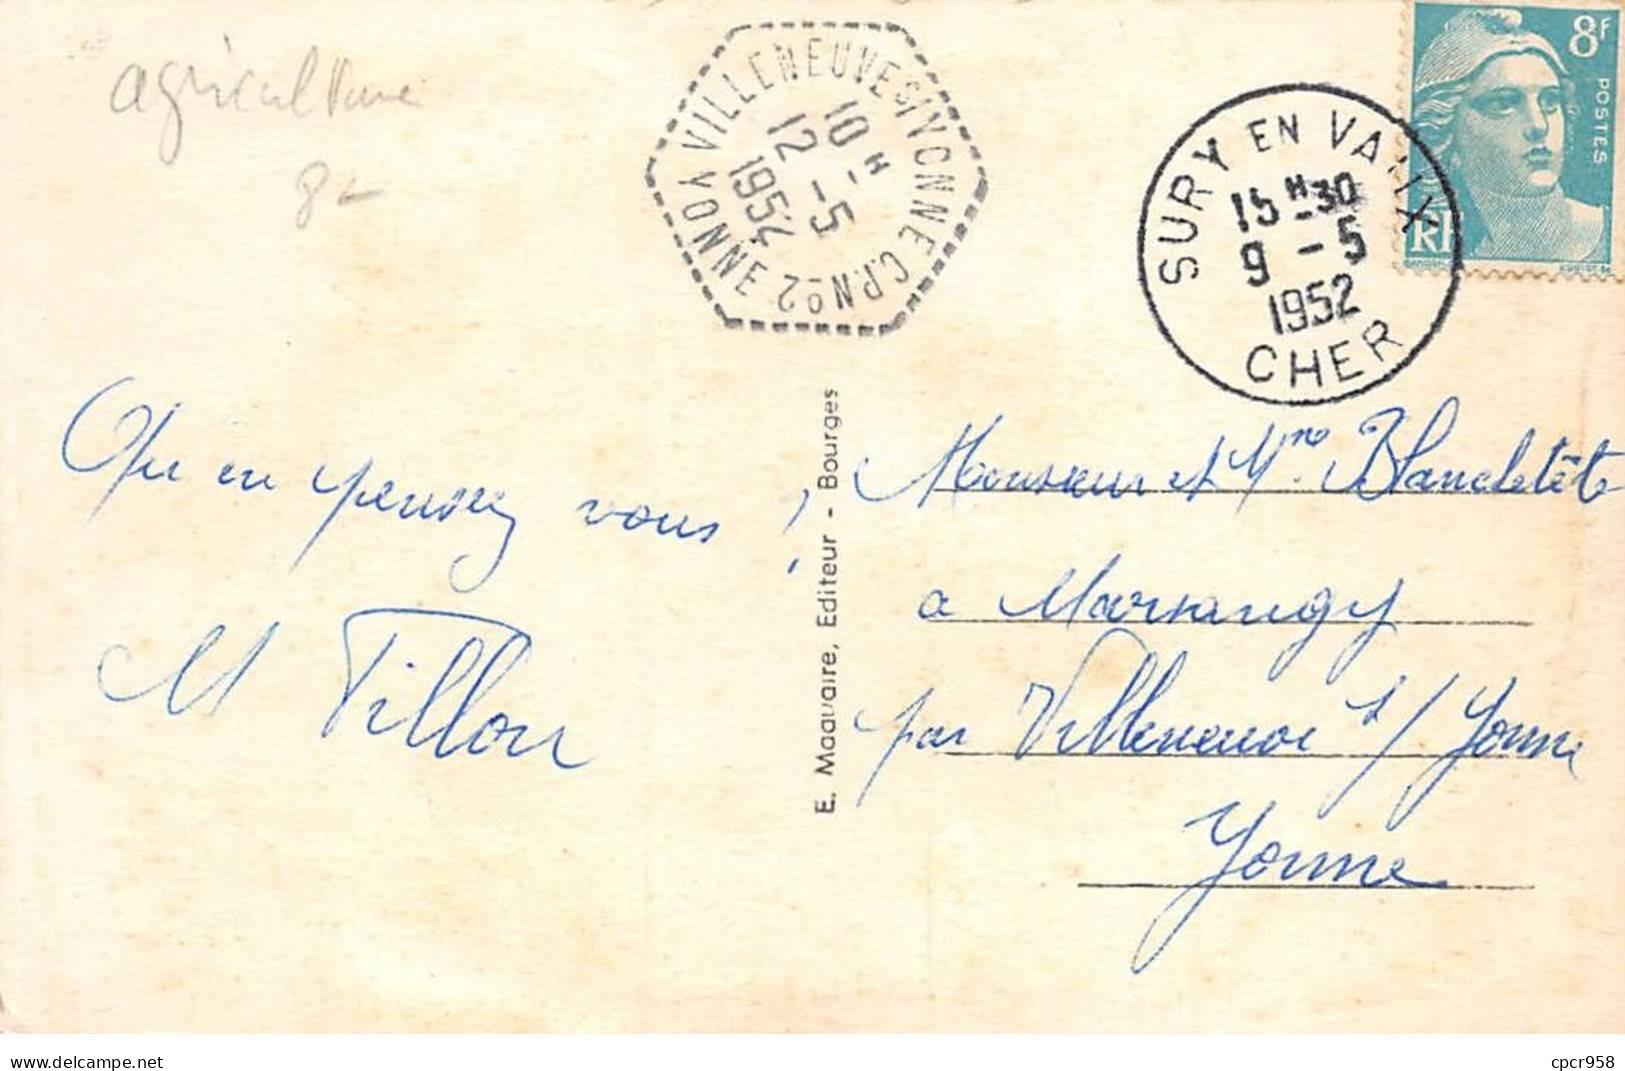 agriculture
8-
VILLENEUVE S/YONNE C.P.N°2
YONNE
10H
12-5
1954
SURY EN VAUX
15H30
9-5
1952
CHER
8F
POSTES
RF
Qu'en pensez vous !
M Tillou
E. Maquaire, Editeur - Bourges
Monsieur et Mme Blanchetête
a Marsangy
par Villeneuve s/Yonne
Yonne
delcampe.net
cpcr958